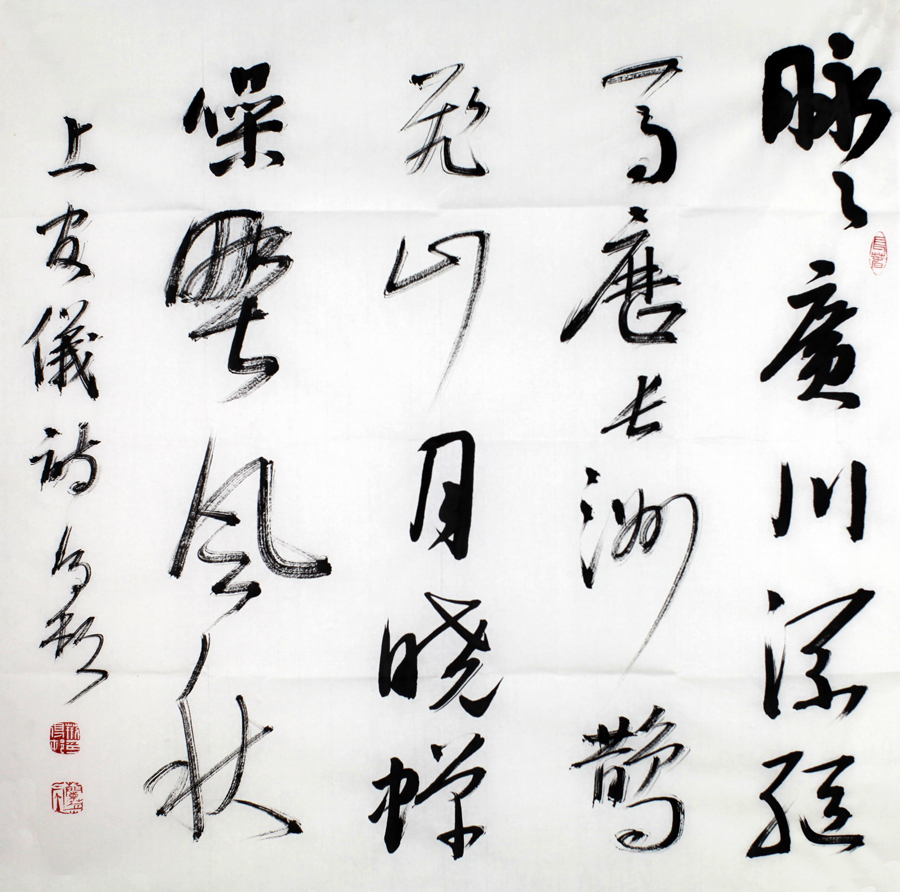 脉々廣川流驅
馬歷長洲鵲
飛山月晓蝉
噪野風秋
上官儀詩